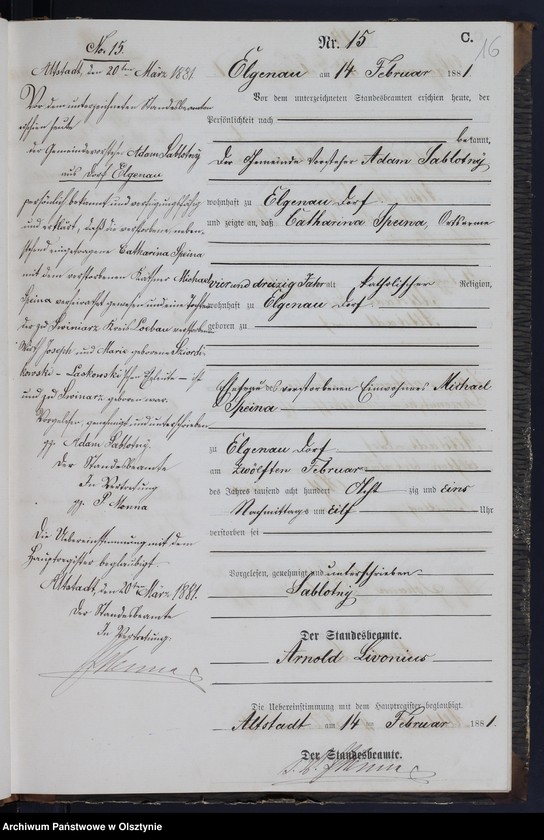 C.
16
Nr. 15
Elgenau am 14 Februar 1881.
Vor dem unterzeichneten Standesbeamten erschien heute, der
Persönlichkeit nach
bekannt,
Der Gemeinde Vorsteher Adam Sablotny
wohnhaft zu Elgenau Dorf
und zeigte an, daß Catharina Speina, Ortsarme
vier und dreizig Jahr alt katholischer Religion,
wohnhaft zu Elgenau Dorf
geboren zu
Ehefrau des verstorbenen Einwohners Michael
Speina
zu Elgenau Dorf
am zwölften Februar
des Jahres tausend acht hundert Acht zig und eins
Nachmittags um eilf Uhr
verstorben sei
Vorgelesen, genehmigt und unterschrieben
Sablotny
Der Standesbeamte.
Arnold Livonius
Die Uebereinstimmung mit dem Hauptregister beglaubigt.
Altstadt am 14 Februar 1881.
Der Standesbeamte.
No. 15.
Altstadt, den 20ten März 1881.
Vor dem unterzeichneten Standesbeamten
erschien heute
der Gemeindevorsteher Adam Sablotny
aus Dorf Elgenau
persönlich bekannt und verfügungsfähig
und erklärt, daß die verstorbene, neben-
stehend eingetragene Catharina Speina
mit dem verstorbenen Käthner Michael
Speina verheirathet gewesen und eine Tochter
der zu Swiniarz Kreis Loebau verstorbenen
Wirth Joseph und Marie geborene
Laskowski'schen Eheleute – ist
und zu Swinarz geboren war.
Vorgelesen, genehmigt und unterschrieben
gz. Adam Sablotny.
Der Standesbeamte
In Vertretung
gz. P Monna
Die Uebereinstimmung mit dem
Hauptregister beglaubigt.
Altstadt, den 20ten März 1881.
Der Standesbeamte
In Vertretung
Archiwum Państwowe w Olsztynie